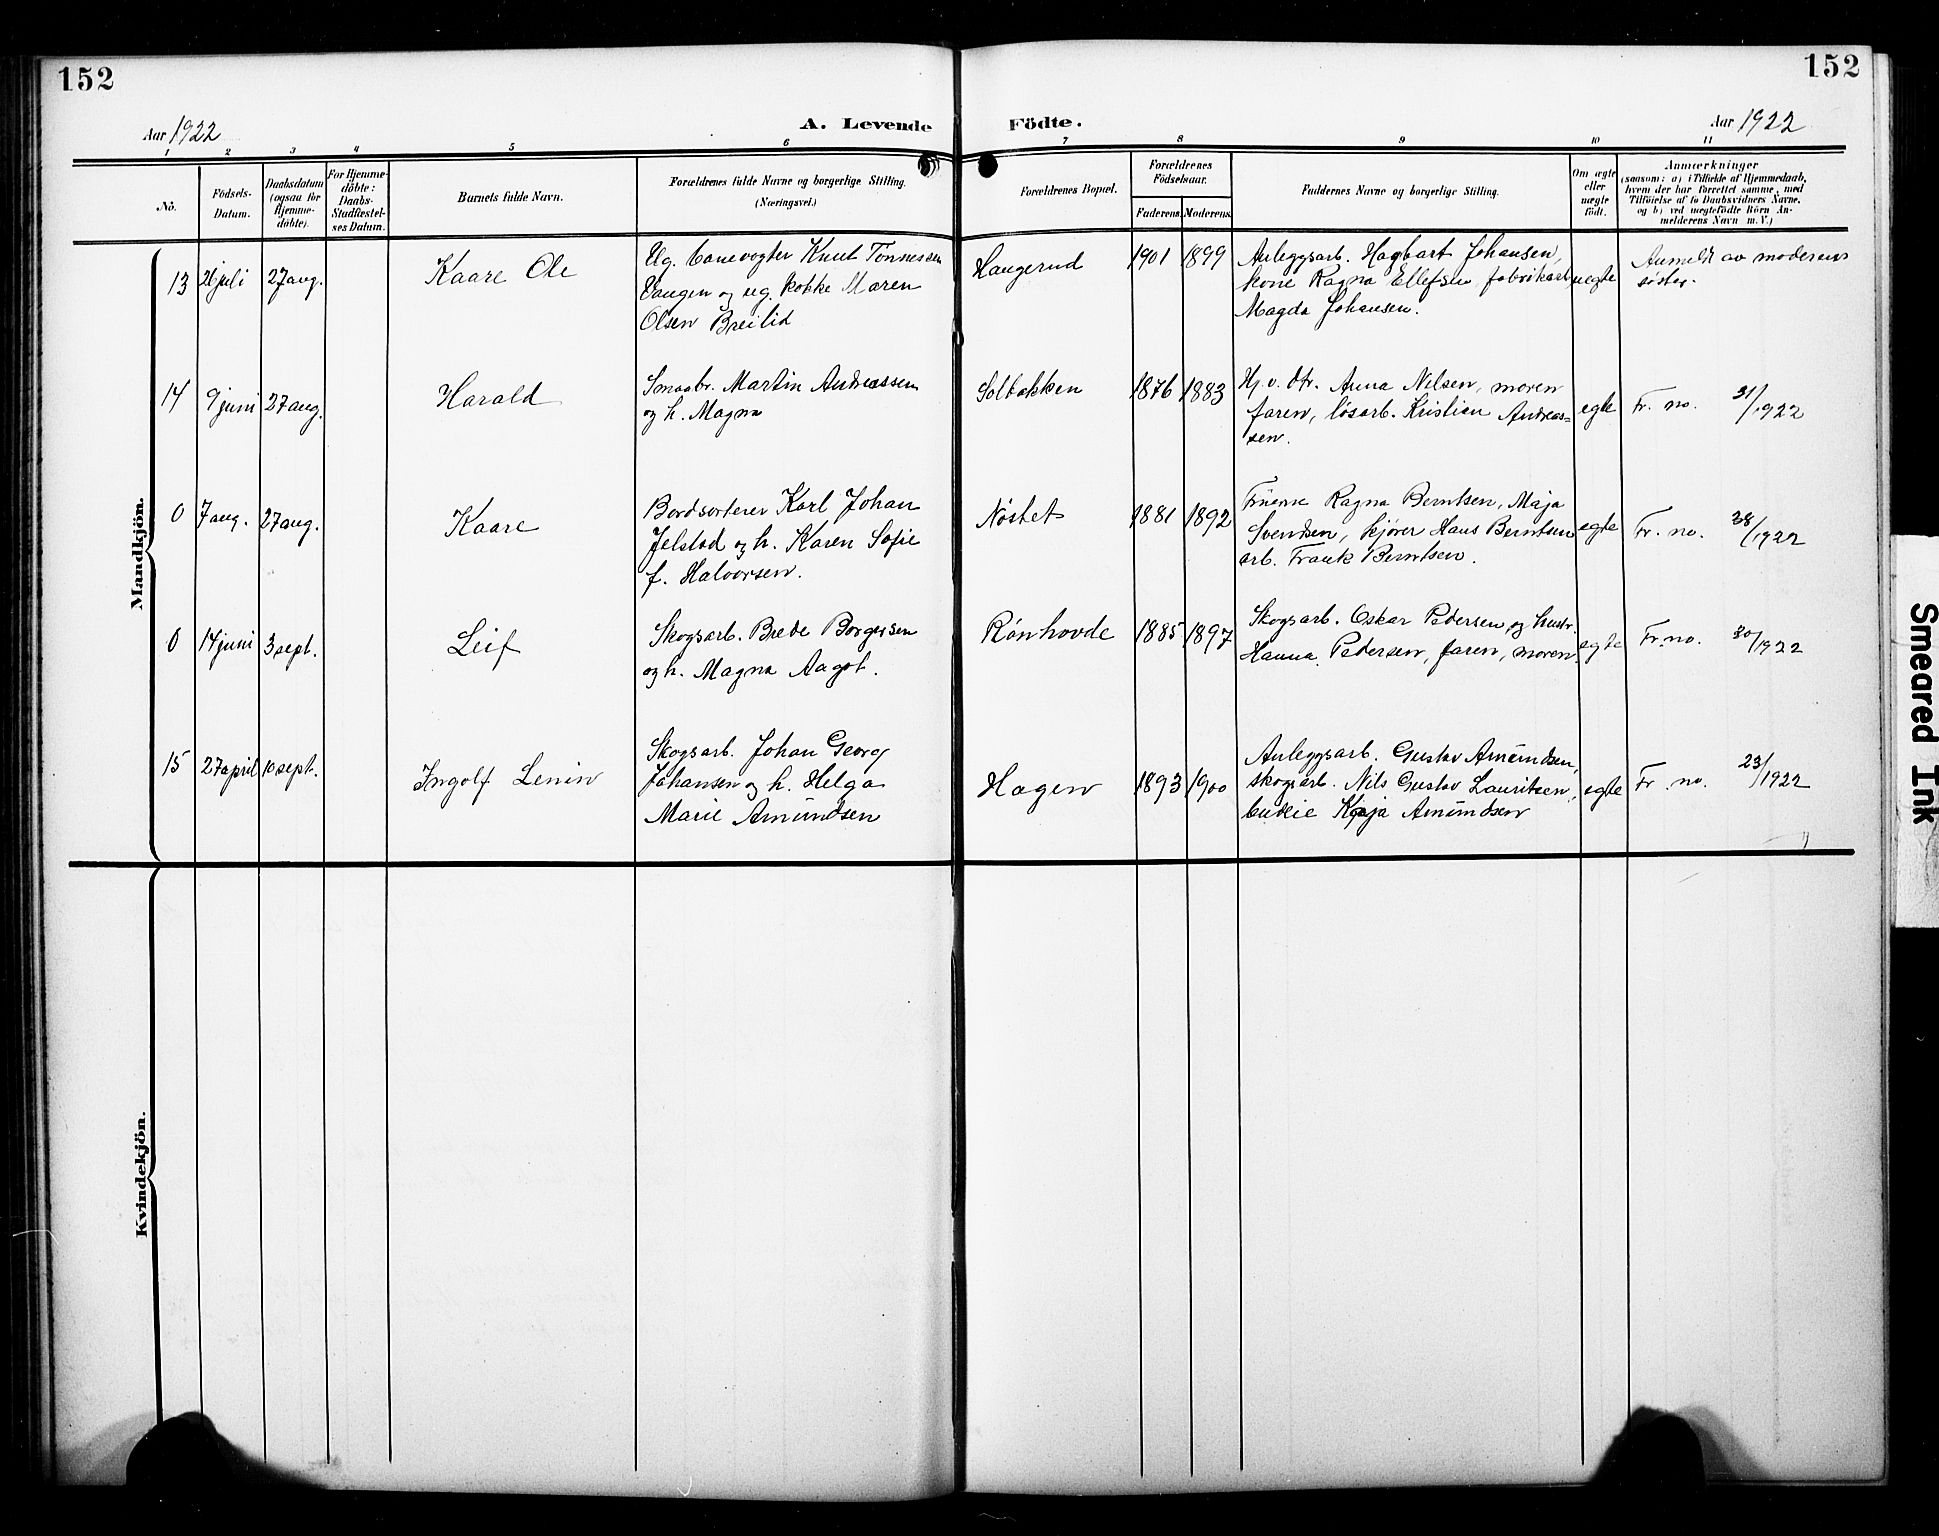 152
152
Aar 1922
A. Levende
Födte.
Aar 1922
1 2 3 4 5 6 7 8 9 10 11
No.
Födsels-
Datum.
Daabsdatum
(ogsaa for
Hjemme-
döbte).
For Hjemme-
döbte:
Daabs-
Stadfæstel-
ses Datum.
Barnets fulde Navn.
Forældrenes fulde Navne og borgerlige Stilling.
(Næringsvei.)
Forældrenes Bopæl.
Forældrenes
Födselsaar.
Faderens. Moderens.
Faddernes Navne og borgerlige Stilling.
Om ægte
eller
uægte
födt.
Anmærkninger
(saasom: a) i Tilfælde af Hjemmedaab,
hvem der har forrettet samme, med
Tilföielse af to Daabsvidners Navne,
og b) ved uægtefödte Börn An-
melderens Navn m. V.)
Mandkjön.
13 21 juli 27 aug.
Kaare Ole
Ug. banevogter Knut Tønnessen
Vangen og ug. kokke Maren
Olsen Breilid
Haugerud
1901 1899
Anleggsarb. Hagbart Johansen,
kone Ragna Ellefsen, fabrikarb.
Magda Johansen.
uegte
Anmeldt av moderens
søster.
14 9 juni 27 aug.
Harald
Smaabr. Martin Andreassen
og h. Magna
Solbakken
1876 1883
Hj.v. dtr. Anna Nilsen, moren
faren, løsarb. Kristian Andreas=
sen.
egte
Fr. no. 31/1922
0 7 aug. 27 aug.
Kaare
Bordsorterer Karl Johan
Jelstad og h. Karen Sofie
f. Halvorsen.
Nøstet
1881 1892
Fruerne Ragna Berntsen, Maja
Svendsen, kjører Hans Berntsen
arb. Frank Berntsen.
egte
Fr. no. 28/1922
0 14 juni 3 sept.
Leif
Skogsarb. Brede Borgersen
og h. Magna Aagot.
Rønhovde
1885 1897
Skogsarb. Oskar Pedersen og hustr.
Hanna Pedersen, faren, moren
egte
Fr. no. 30/1922
15 27 april 10 sept.
Ingolf Lenin
Skogsarb. Johan Georg
Johansen og h. Helga
Marie Amundsen
Hagen
1893 1900
Anleggsarb. Gustav Amundsen,
skogsarb. Nils Gustav Lauritsen,
budeie Kaja Amundsen
egte
Fr. no. 23/1922
Kvindekjön.
Smeared Ink